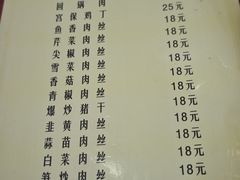 回锅肉 25元
宫保鸡丁 18元
鱼香肉丝 18元
芹菜肉丝 18元
尖椒肉丝 18元
雪菜肉丝 18元
香菇肉丝 18元
青椒肉丝 18元
爆炒猪干 18元
韭黄肉丝 18元
蒜苗肉丝 18元
白菜肉丝 18元
笋 肉丝